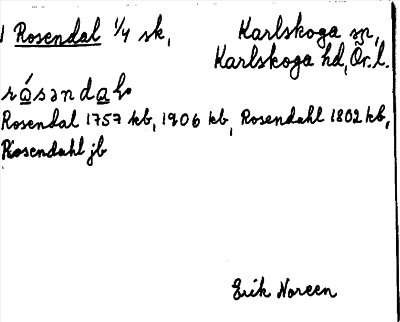 1 Rosendal 1/4 sk, Karlskoga sn,
Karlskoga hd, Ör. l.
rósəndaḷ
Rosendal 1757 kb, 1906 kb, Rosendahl 1802 kb,
Rosendahl jb
Erik Noreen